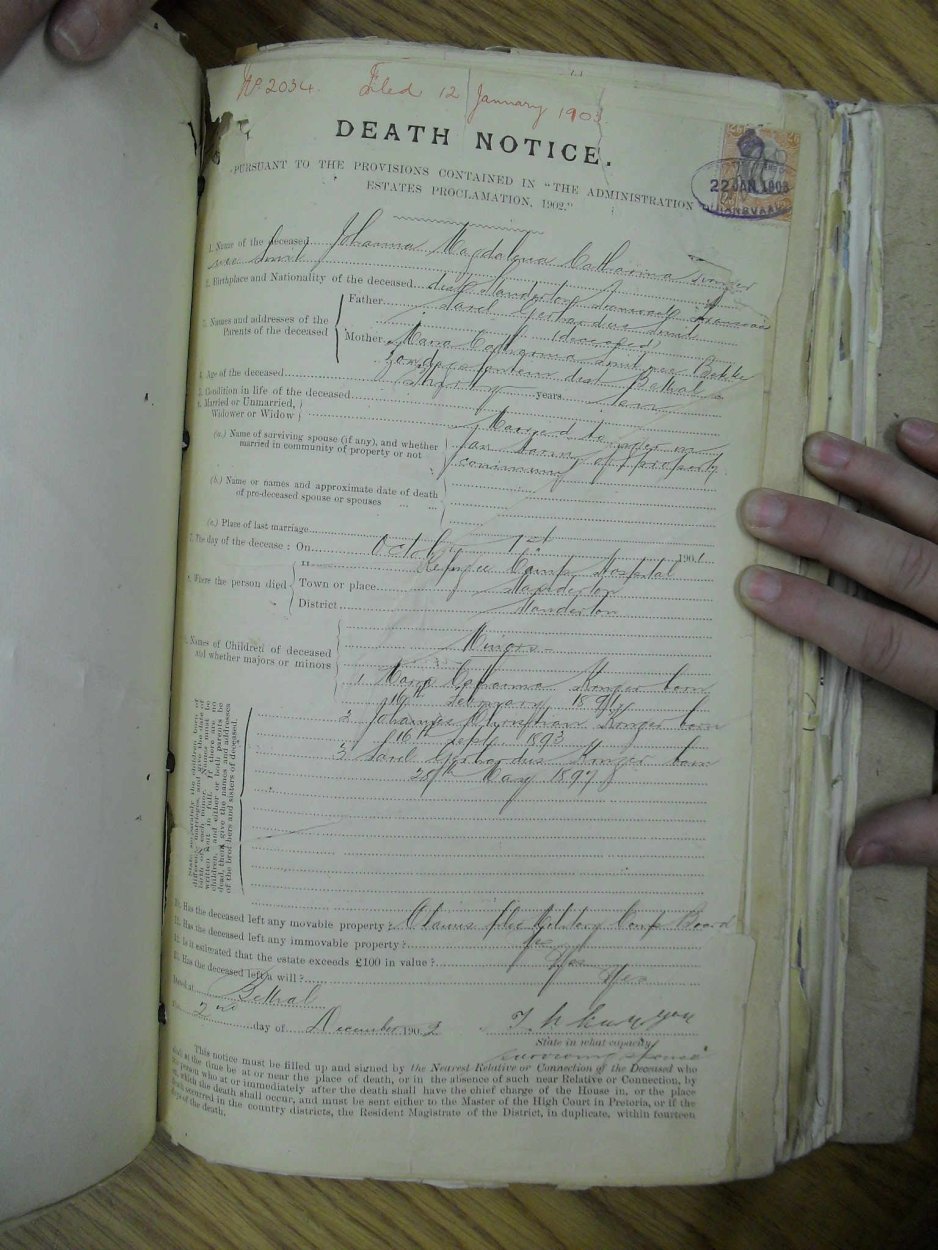 No 2034. Filed 12 January 1903
DEATH NOTICE.
PURSUANT TO THE PROVISIONS CONTAINED IN "THE ADMINISTRATION
ESTATES PROCLAMATION, 1902."
22 JAN 1903
1. Name of the deceased Johanna Magdalena Catharina
nee Smit
2. Birthplace and Nationality of the deceased dist Standerton Transvaal
3. Names and addresses of the Parents of the deceased
Father Sarel Gerhardus Smit
(deceased)
Mother Maria Catharina Smit nee
dist Bethal
4. Age of the deceased Thirty years
5. Condition in life of the deceased
6. Married or Unmarried, Widower or Widow Married
(a.) Name of surviving spouse (if any), and whether married in community of property or not
community of property
(b.) Name or names and approximate date of death of pre-deceased spouse or spouses
(c.) Place of last marriage
7. The day of the decease: On October 1st 1901
8. Where the person died Refugee Camp Hospital
Town or place Standerton
District Standerton
9. Names of Children of deceased and whether majors or minors
Minors
1 Maria Catharina born
16th February
2 Johannes born
16th Sept 1893
3 Sarel Gerhardus born
28th May 1897
State separately the children born of
different marriages, and give the date of
birth of each minor. Names must be
written out in full. If there are no
children, and either or both parents be
dead, then give the names and addresses
of the brothers and sisters of deceased.
10. Has the deceased left any movable property? Claims Military Comp Board
11. Has the deceased left any immovable property? Yes
12. Is it estimated that the estate exceeds £100 in value? Yes
13. Has the deceased left a will? Yes
Dated at Bethal
2nd day of December 1902
State in what capacity
surviving spouse
This notice must be filled up and signed by the Nearest Relative or Connection of the Deceased who
shall at the time be at or near the place of death, or in the absence of such near Relative or Connection, by
the person who at or immediately after the death shall have the chief charge of the House in, or the place
on which the death shall occur, and must be sent either to the Master of the High Court in Pretoria, or if the
death occurred in the country districts, the Resident Magistrate of the District, in duplicate, within fourteen
days of the death.